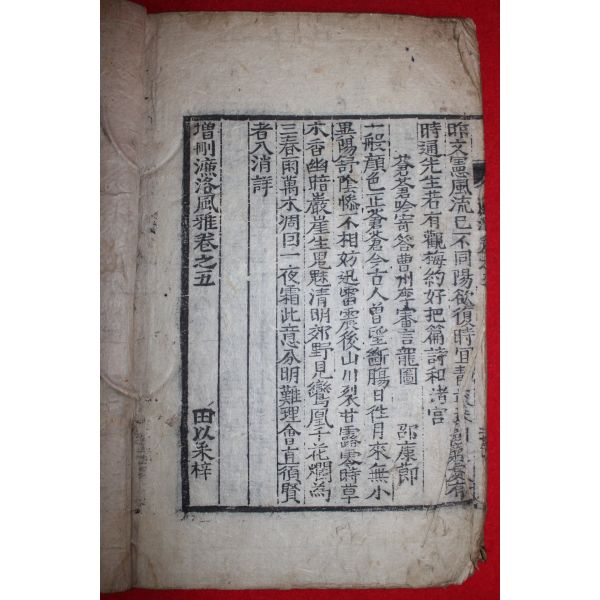 昨文憲風流已不同陽欲復時宜靑
時通先生若有觀梅約好把篇詩和渚宮
蒼蒼吟寄答曹州李審言龍圖
邵康節
一般顔色正蒼蒼今古人曾望斷腸日徃月來無小
異陽舒陰慘不相妨迅雷震後山川裂甘露零時草
木香幽暗巖崖生鬼魅淸明郊野見鸞凰千花爛為
三春雨萬木凋因一夜霜此意分明難理會直須賢
者入消詳
増刪濂洛風雅卷之五
田以采梓